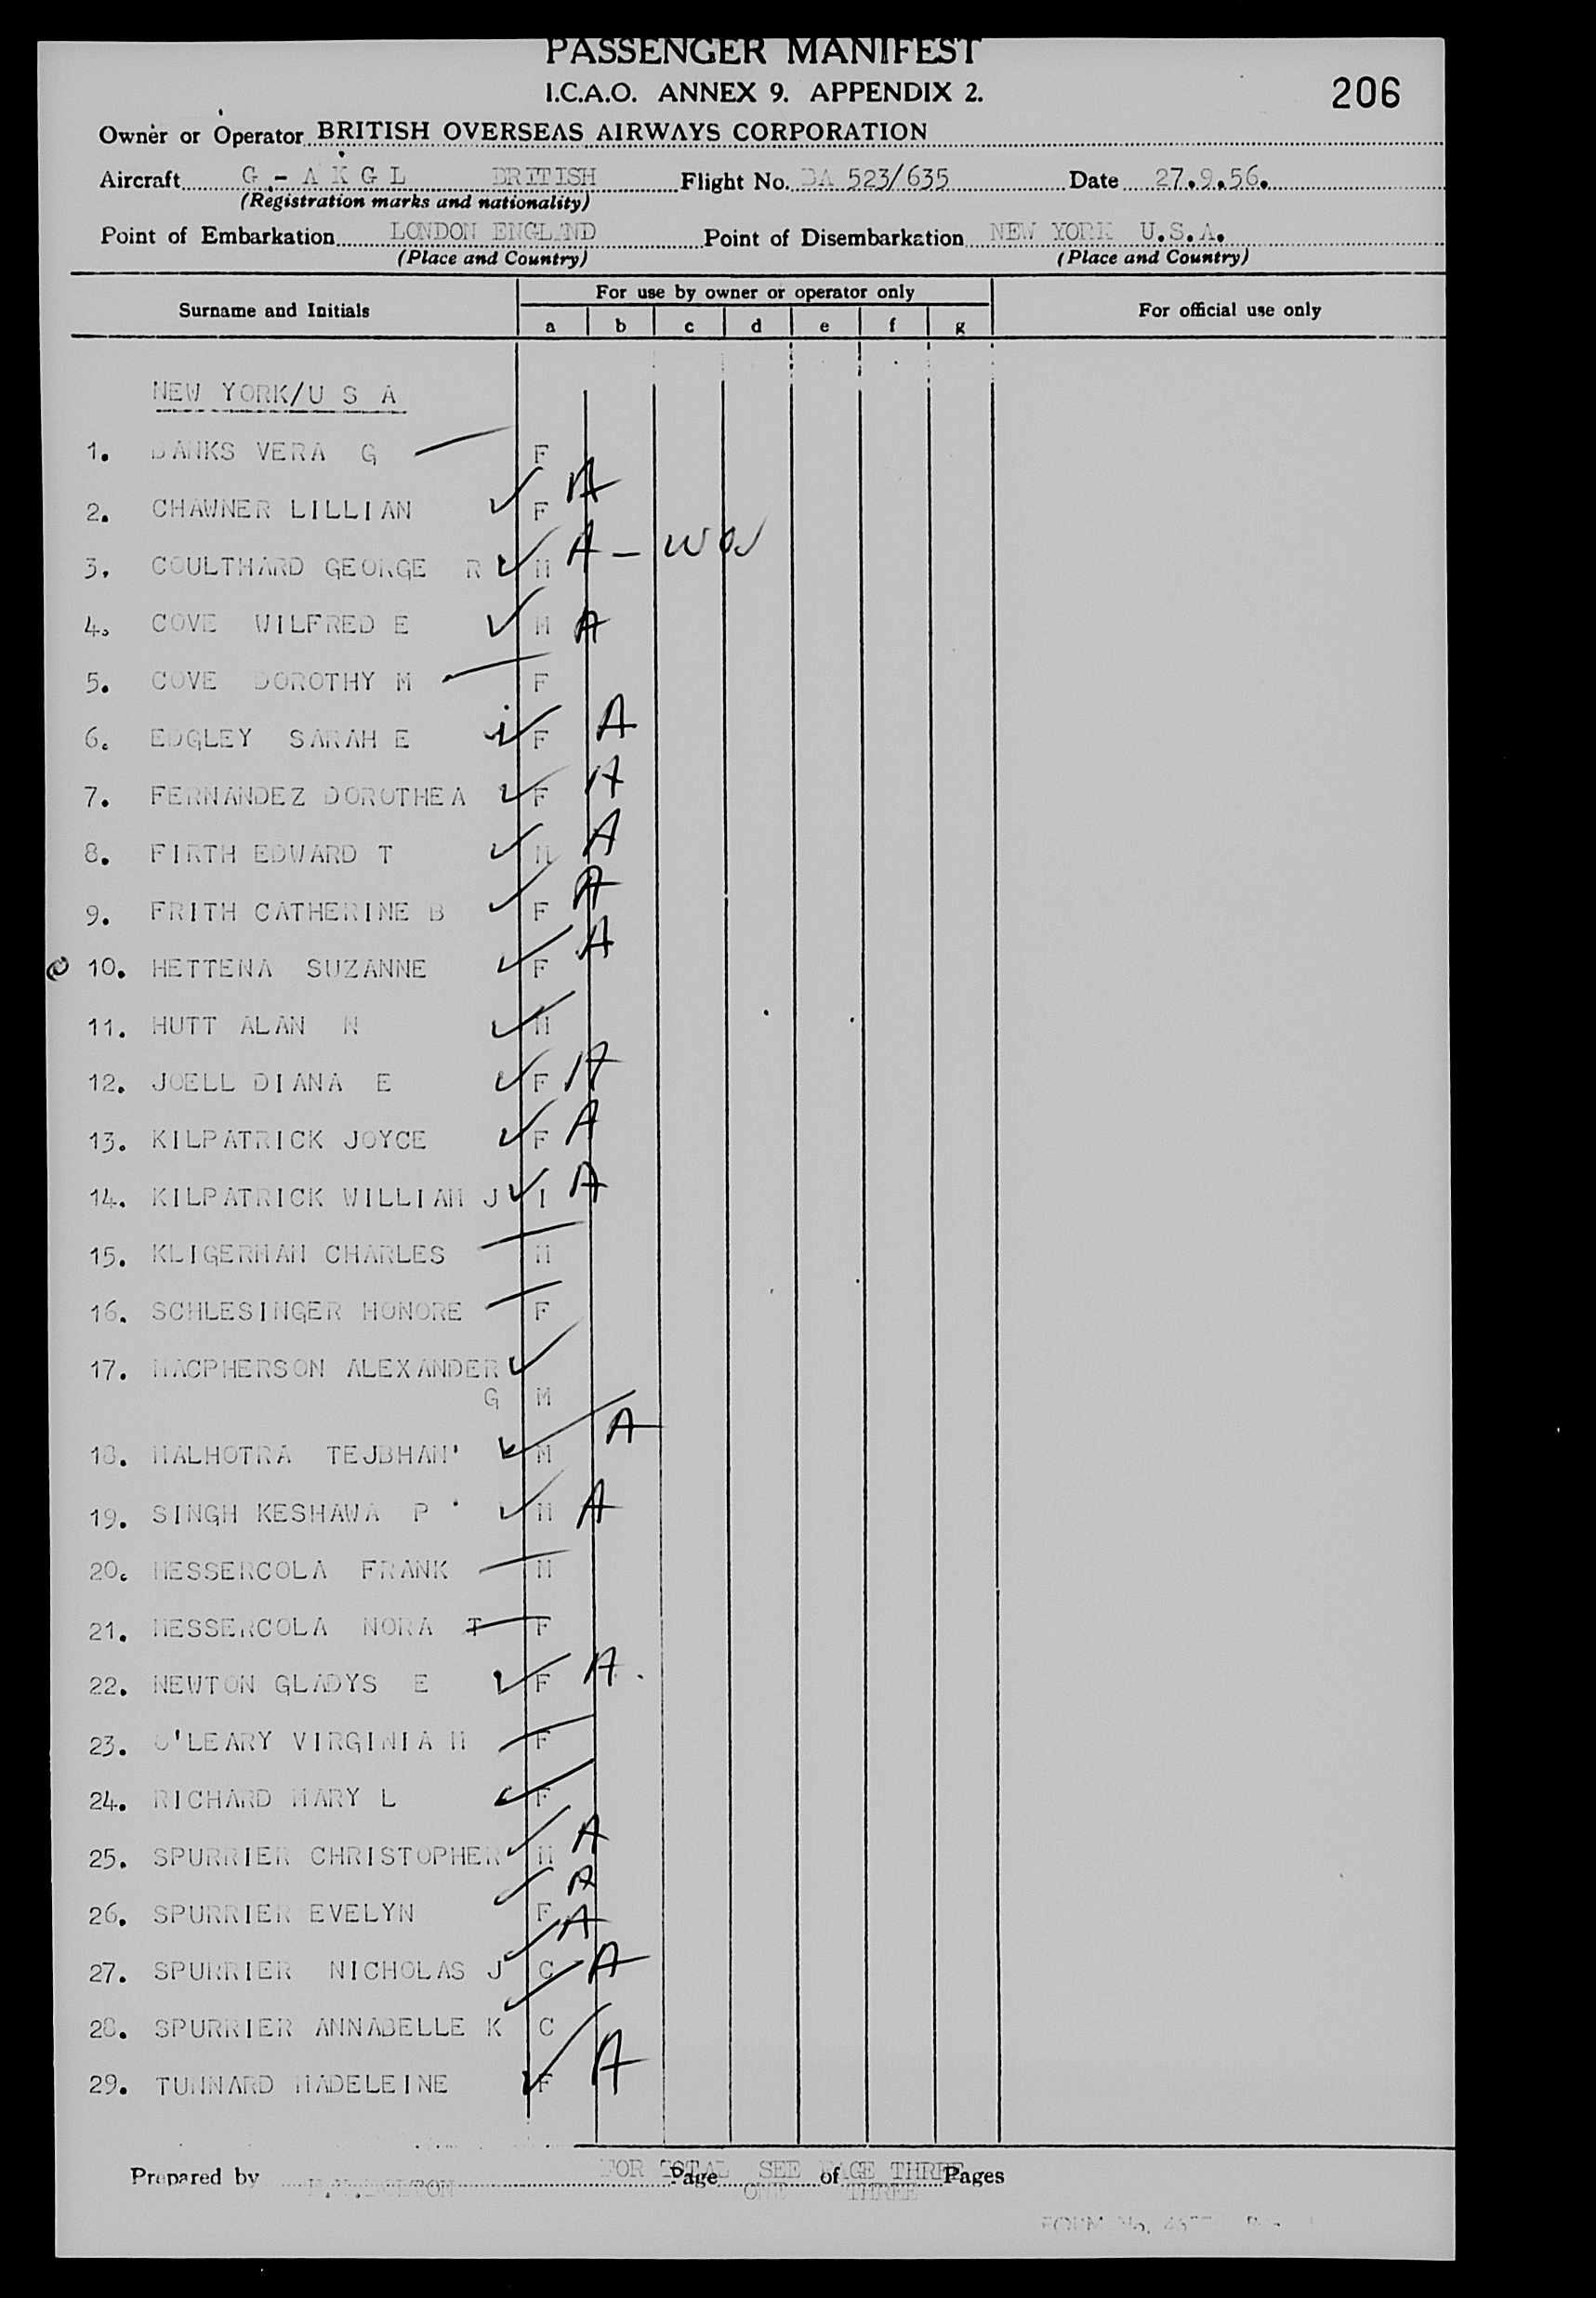 PASSENGER MANIFEST
I.C.A.O. ANNEX 9. APPENDIX 2.
206
Owner or Operator BRITISH OVERSEAS AIRWAYS CORPORATION
Aircraft G.- A K G L BRITISH Flight No. BA 523/635 Date 27.9.56.
(Registration marks and nationality)
Point of Embarkation LONDON ENGLAND Point of Disembarkation NEW YORK U.S.A.
(Place and Country) (Place and Country)
Surname and Initials For use by owner or operator only For official use only
a b c d e f g
NEW YORK/U S A
1. BANKS VERA G F
2. CHAWNER LILLIAN ✓ F A
3. COULTHARD GEORGE R ✓ M A –
4. COVE WILFRED E ✓ M A
5. COVE DOROTHY M F
6. EDGLEY SARAH E ✓ F A
7. FERNANDEZ DOROTHEA ✓ F A
8. FIRTH EDWARD T ✓ M A
9. FRITH CATHERINE B ✓ F A
10. HETTENA SUZANNE ✓ F A
11. HUTT ALAN N ✓ M
12. JOELL DIANA E ✓ F A
13. KILPATRICK JOYCE ✓ F A
14. KILPATRICK WILLIAM J ✓ I A
15. KLIGERMAN CHARLES M
16. SCHLESINGER HONORE F
17. MACPHERSON ALEXANDER ✓
G M
18. MALHOTRA TEJBHAN' ✓ M A
19. SINGH KESHAWA P ✓ M A
20. MESSERCOLA FRANK M
21. MESSERCOLA NORA T F
22. NEWTON GLADYS E ✓ F A
23. O'LEARY VIRGINIA M F
24. RICHARD MARY L ✓ F
25. SPURRIER CHRISTOPHER ✓ M A
26. SPURRIER EVELYN ✓ F A
27. SPURRIER NICHOLAS J ✓ C A
28. SPURRIER ANNABELLE K ✓ C A
29. TUNNARD MADELEINE ✓ F A
FOR TOTAL SEE PAGE THREE
Prepared by Page ONE of THREE Pages
FORM No.